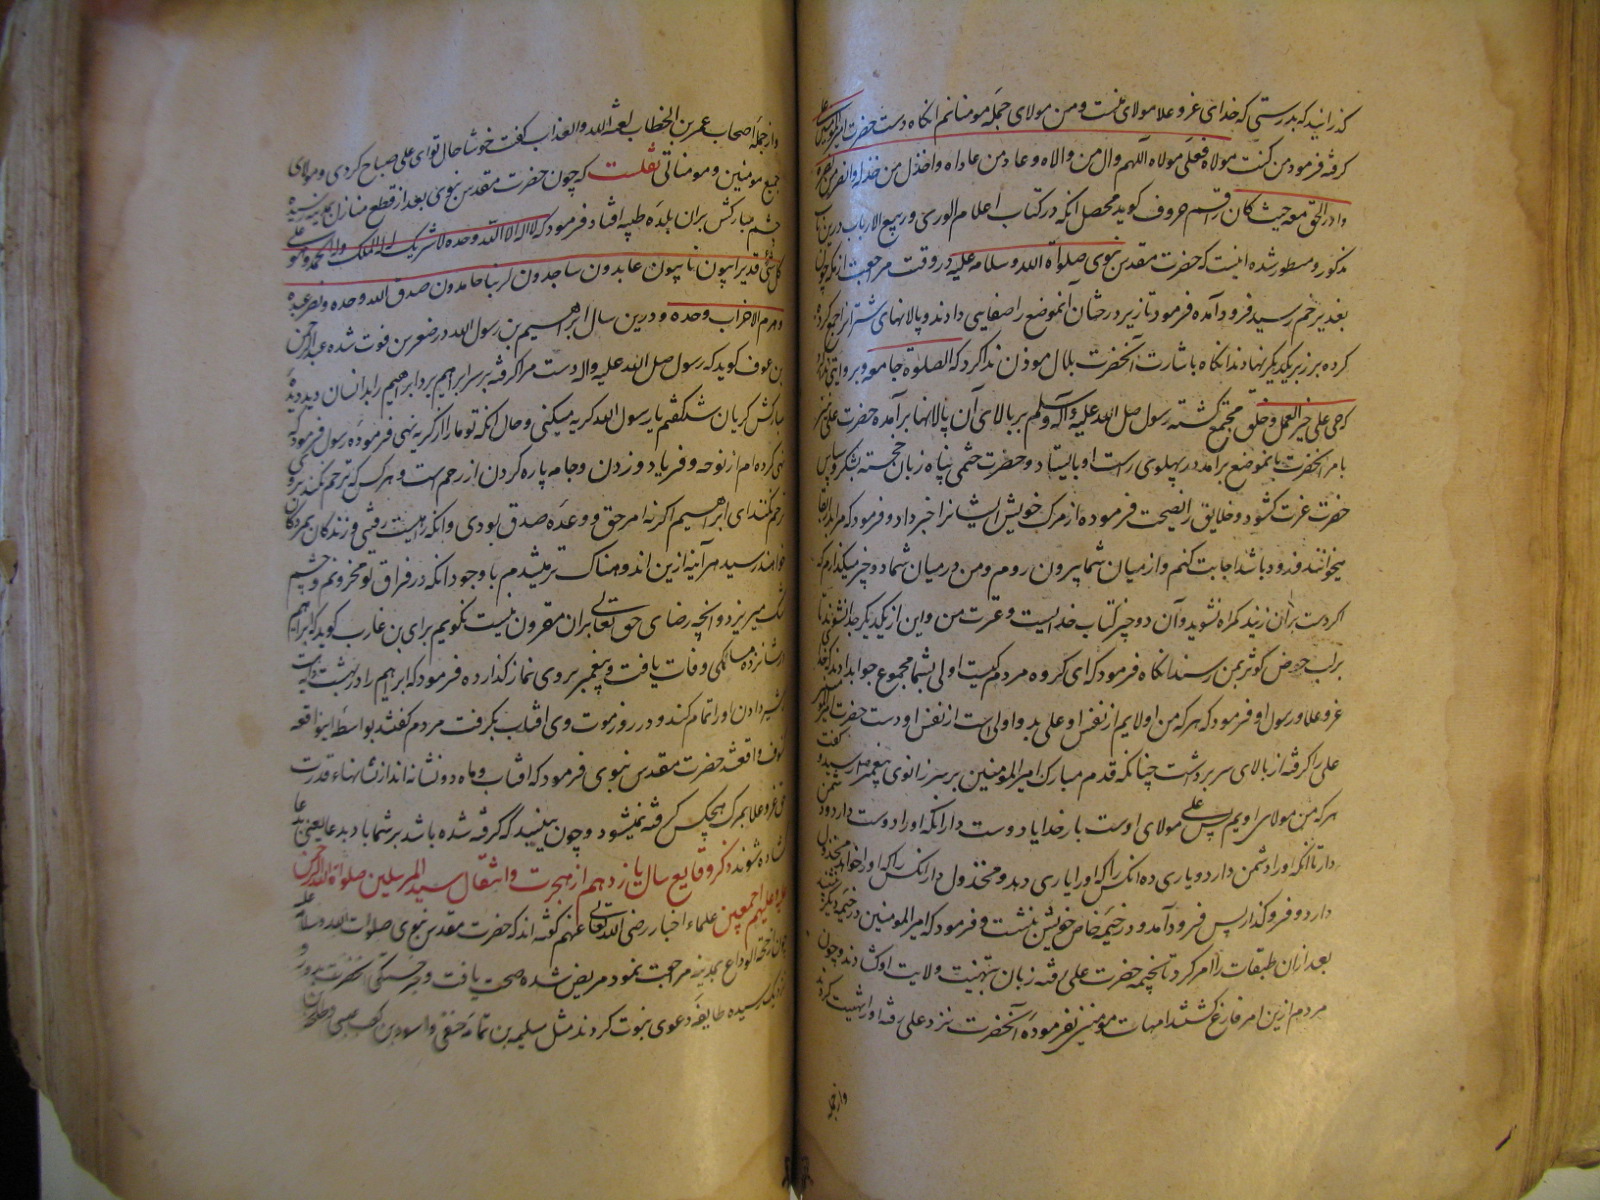 گذرانید که بدرستی که خدای عز و علا مولای منست و من مولای جمله مومنانم انکاه دست حضرت امیرالمومنین علی
گرفته فرمود من کنت مولاه فعلی مولاه اللهم وال من والاه و عاد من عاداه و اخذل من خذله وانصر من نصره
وادر الحق معه حیث کان راقم حروف کوید محصل انکه در کتاب اعلام الوری و ربیع الابرار درین باب
مذکور و مسطور شده اینست که حضرت مقدس نبوی صلواة الله و سلامه علیه در وقت مراجعت از مکه چون
بغدیر خم رسید فرود آمده فرمود تا زیر درختان آنموضع را صفایی دادند و پالانهای شترانرا جمع کرده
کرده بر زبر یکدیکر نهادند انکاه باشارت آنحضرت بلال موذن ندا کرد که الصلوة جامعه و بروایتی ندا
که حی علی خیر العمل و خلق مجتمع کشته رسول صلی الله علیه و آله وسلم بر بالای آن پالانها برآمده حضرت علی نیز
بامر آنحضرت بانموضع برآمد در پهلوی راست او بایستاد و حضرت ختمی پناه زبان خجسته بشکر و سپاس
حضرت عزت کشود و خلایق را نصیحت فرموده از مرک خویش ایشانرا خبر داد و فرمود که مرا بدار بقا
میخوانند و زود باشد اجابت کنم و از میان شما بیرون روم و من در میان شما دو چیز میکذارم که
اگر دست بران زنید کمراه نشوید و آن دو چیز کتاب خداست و عترت من و این از یکدیکر جدا نشوند تا
بر لب حوض کوثر بمن رسند انکاه فرمود که ای کروه مردم کیست اولی بشما مجموع جواب دادند که خدای
عز و علا و رسول او فرمود که هر که من اولایم از نفس او علی بدو اولی است از نفس او و دست حضرت امیر المومنین
علی را گرفته از بالای سر برداشت چنانکه قدم مبارک امیرالمؤمنین بر سر زانوی پیغمبر ما رسید و گفت
هر که من مولای اویم پس علی مولای اوست بار خدایا دوست دار انکه او را دوست دارد و دشمن
دار تا انکه او را دشمن دارد و یاری ده انکس را که او را یاری دهد و مخذول دار انکس را که او را خوار مخذول
دارد و فروکذار پس فرود آمد و در خیمه خاص خویش بنشست و فرمود که امیرالمومنین در خیمه دیکر نشیند
بعد ازان طبقات را امر کرد تا بخیمه حضرت علی رفته زبان بتهنیت ولایت او کشادند و چون
مردم از این امر فارغ کشتند امهات مومنین بفرموده آنحضرت نزد علی رفته او را تهنیت کردند
و از جمله
و از جمله اصحاب عمر بن الخطاب لعنة الله والعذاب کفت خوشا حال تو ای علی صباح کردی و مولای
جمیع مومنین و مومناتی نقلست که چون حضرت مقدس نبوی بعد از قطع منازل بمدینه رسید
چشم مبارکش بران بلده طیبه افتاد فرمود که لا اله الا الله وحده لا شریک له له الملک وله الحمد وهو علی
کل شئ قدیر ایبون تایبون عابدون ساجدون لربنا حامدون صدق الله وعده و نصر عبده
وهزم الاحزاب وحده و درین سال ابراهیم بن رسول الله در صغر سن فوت شده عبدالرحمن
بن عوف کوید که رسول صلی الله علیه واله دست مرا گرفته بر سر ابراهیم برد ابراهیم را بدانسان دید دیده
مبارکش کریان شد کفتم یا رسول الله کریه میکنی و حال انکه تو ما را از کریه نهی فرموده رسول فرمود که
نهی کرده ام از نوحه و فریاد و زدن و جامه پاره کردن از رحم است و هر کس که ترحم نکند برو
رحم نکنند ای ابراهیم اکر نه امر حق و وعده صدق بودی و انکه راهیست رفتنی و زندکان بمردکان
خواهند رسید هر آینه ازین اندوهناک تر میشدم با وجود انکه در فراق تو محزونم و چشم
اشک میریزد و انچه رضای حق تعالی بران مقرون نیست نکویم برای بن عازب کوید که ابراهیم
در شانزده ماهکی وفات یافت و پیغمبر بر وی نماز کذارده فرمود که ابراهیم را در بهشت دایه ایست
شیر دادن او را تمام کند و در روز موت وی افتاب بکرفت مردم کفتند بواسطه این واقعه
کسوف واقعشد حضرت مقدس نبوی فرمود که افتاب و ماه دو نشانه اند از نشانهاء قدرت
حق عز و علا بمرک هیچکس کرفته نمیشود و چون ببینید که گرفته شده باشد بر شما باد بدعا یعنی بدعا
کشاده شوند ذکر وقایع سال یازدهم از هجرت و انتقال سید المرسلین صلواة الله الرحمن
علیه و علیهم اجمعین علماء اخبار رضی الله تعالی عنهم کفته اند که حضرت مقدس نبوی صلوات الله و سلامه علیه
چون از حجة الوداع بمدینه مراجعت نمود مریض شده صحت یافت و خبر خستکی آنحضرت بدور و
نزدیک رسیده طایفه دعوی نبوت کردند مثل مسیلمه بن ثمامه حنفی و اسود بن کعب عنسی و طلحه بن